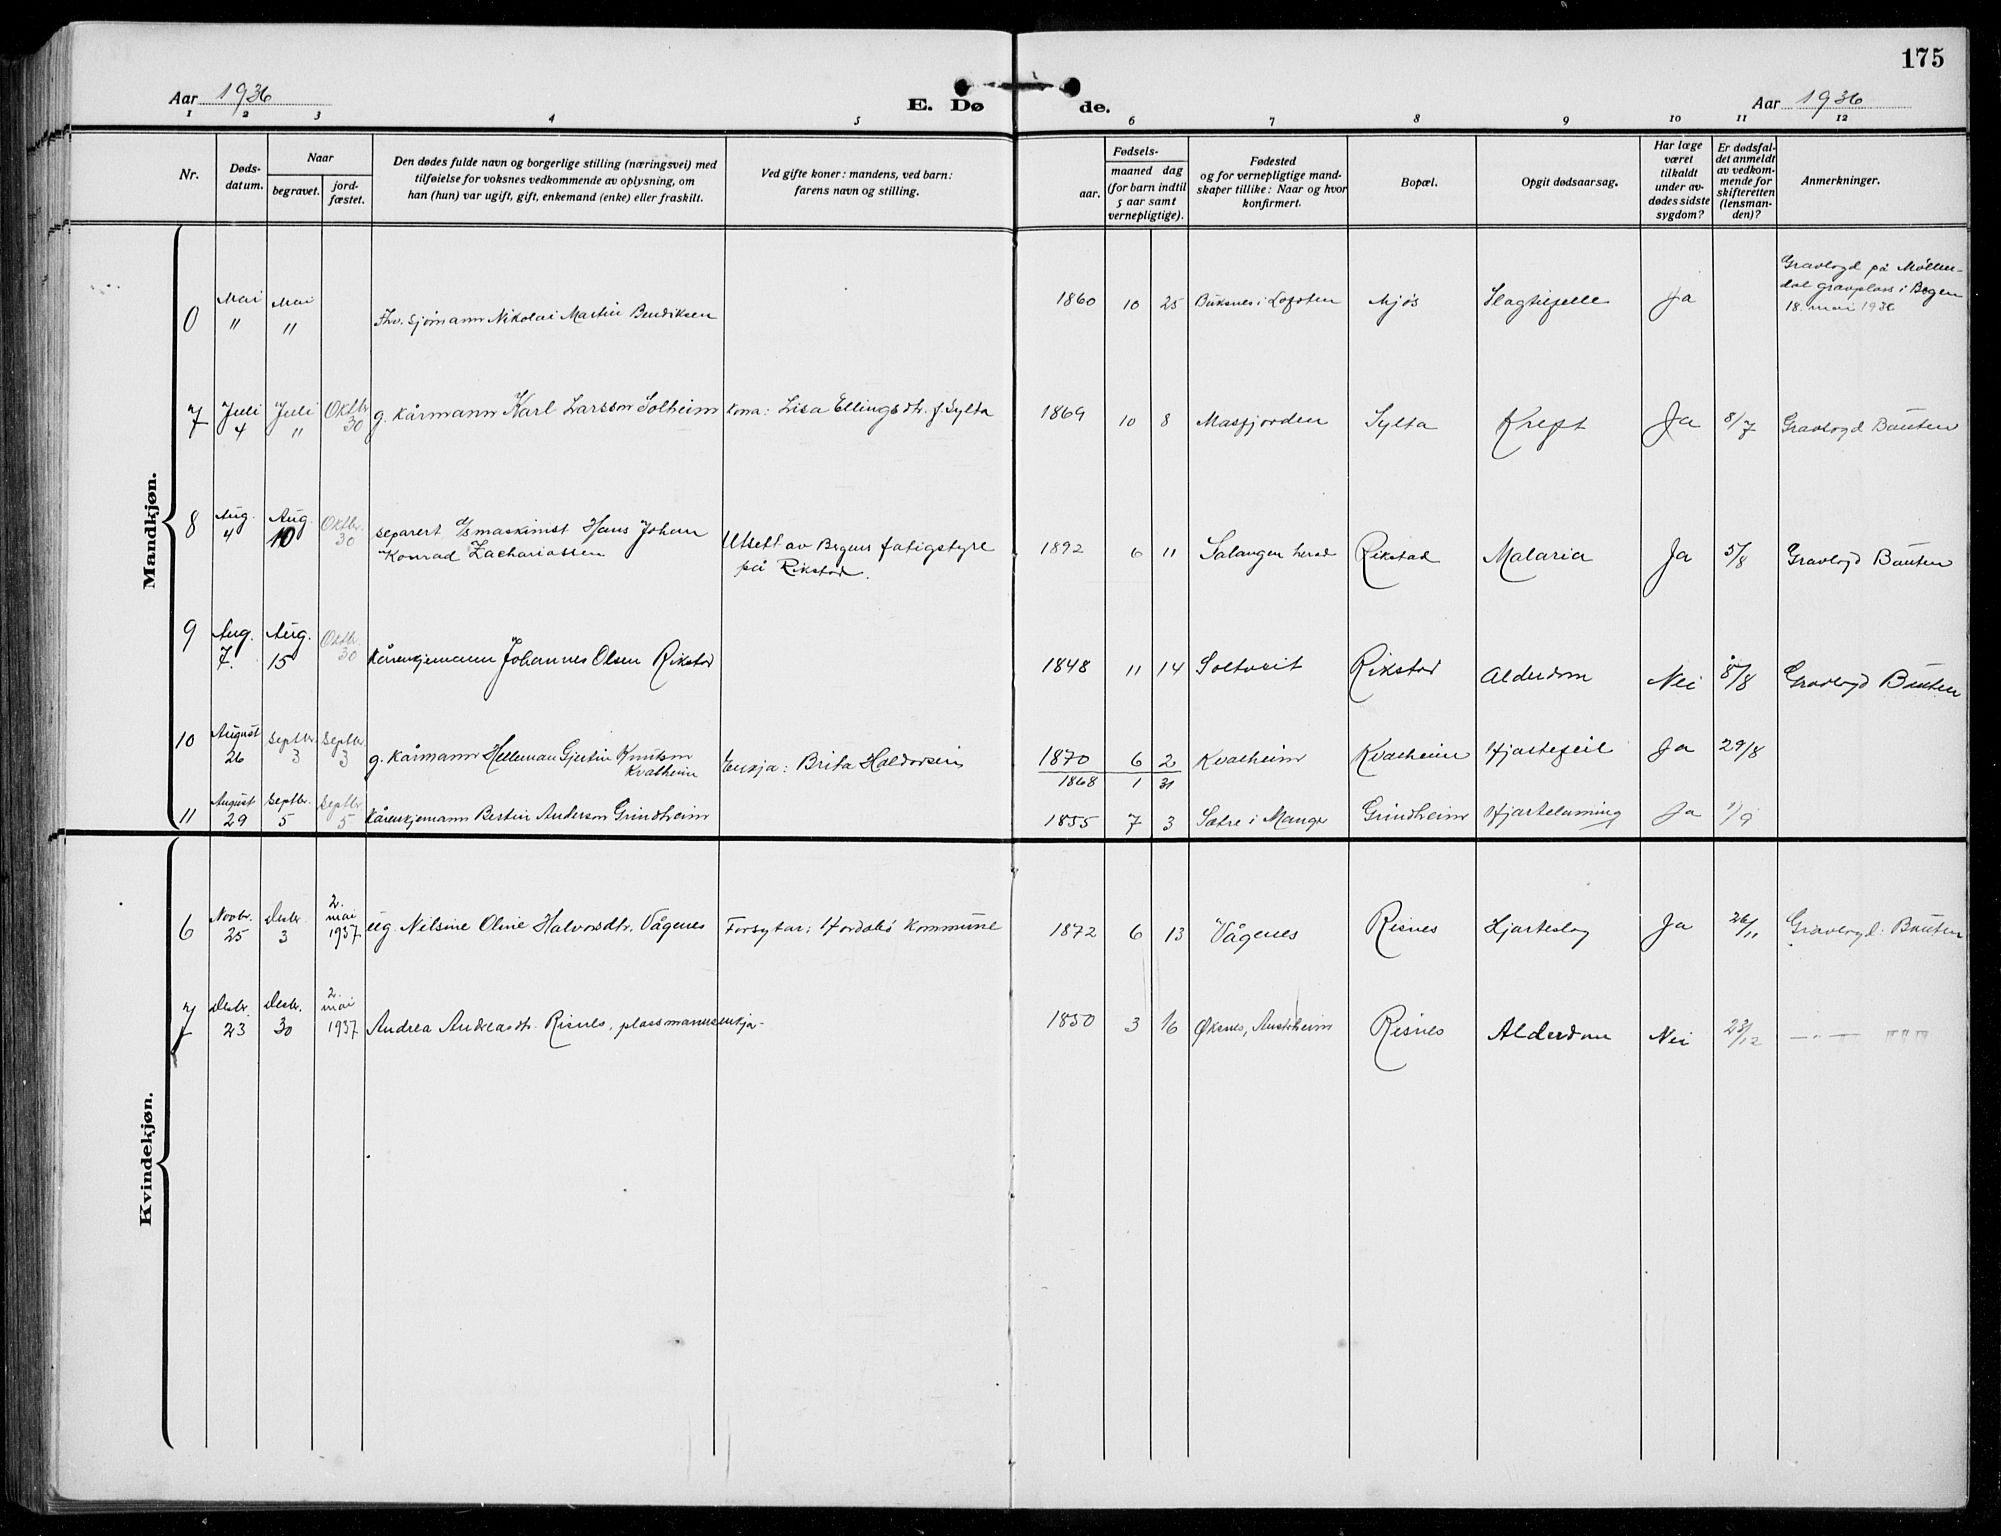 175
Aar 1936
E. Dø
de.
Aar 1936
1 2 3 4 5 6 7 8 9 10 11 12
Nr.
Døds-
datum.
Naar
begravet.
jord-
fæstet.
Den dødes fulde navn og borgerlige stilling (næringsvei) med
tilføielse for voksnes vedkommende av oplysning, om
han (hun) var ugift, gift, enkemand (enke) eller fraskilt.
Ved gifte koner: mandens, ved barn:
farens navn og stilling.
Fødsels-
aar.
maaned dag
(for barn indtil
5 aar samt
vernepligtige).
Fødested
og for vernepligtige mand-
skaper tillike: Naar og hvor
konfirmert.
Bopæl.
Opgit dødsaarsag.
Har læge
været
tilkaldt
under av-
dødes sidste
sygdom?
Er dødsfal-
det anmeldt
av vedkom-
mende for
skifteretten
(lensman-
den)?
Anmerkninger.
Mandkjøn.
0 Mai " Mai " Fhv. sjømann Nikolai Martin Bendiksen 1860 10 25 Buksnes i Lofoten Mjøs Slagtilfelle Ja
Gravlagd på Møllen-
dal gravplass i Bergen
18. mai 1936
7 Juli 4 Juli " Oktbr 30 g. kårmann Karl Larsson Solheim Kona: Lisa Ellingsdtr. f. Sylta 1869 10 8 Masfjorden Sylta Kreft Ja 8/7 Gravlagd Bøuten
8 Aug. 4 Aug. 10 Oktbr. 30 separert maskinist Hans Johan
Konrad Zachariassen
Utsett av Bergens fatigstyre
på Rikstad.
1892 6 11 Salangen herad Rikstad Malaria Ja 5/8 Gravlagd Bøuten
9 Aug. 7. Aug. 15 Oktbr. 30 Kårenkjemann Johannes Olsen Rikstad 1848 11 14 Soltveit Rikstad Alderdom Nei 8/8 Gravlagd Bøuten
10 August 26 Septbr. 3 Septbr 3 g. Kårmann Helleman Gjertin Knutson
Kvalheim
Enkja: Brita Haldorsen 1870 6 2 Kvalheim Kvalheim Hjartefeil Ja 29/8
1868 1 31
11 August 29 Septbr. 5 Septbr 5 Kårenkjemann Bertin Anderson Grindheim 1855 7 3 Sætre i Manger Grindheim Hjartelaming Ja 1/9
Kvindekjøn.
6 Novbr. 25 Desbr. 3 2. mai 1937 ug. Nilsine Oline Halvorsdtr. Vågenes Forsytar: Hordabø Kommune 1872 6 13 Vågenes Risnes Hjarteslag Ja 26/11 Gravlagd: Bøuten
7 Desbr. 23 Desbr. 30 2. mai 1937 Andrea Andreasdtr. Risnes, plassmannsenkja 1850 3 16 Øksnes, Austrheim Risnes Alderdom Nei 23/12 — " — " " "